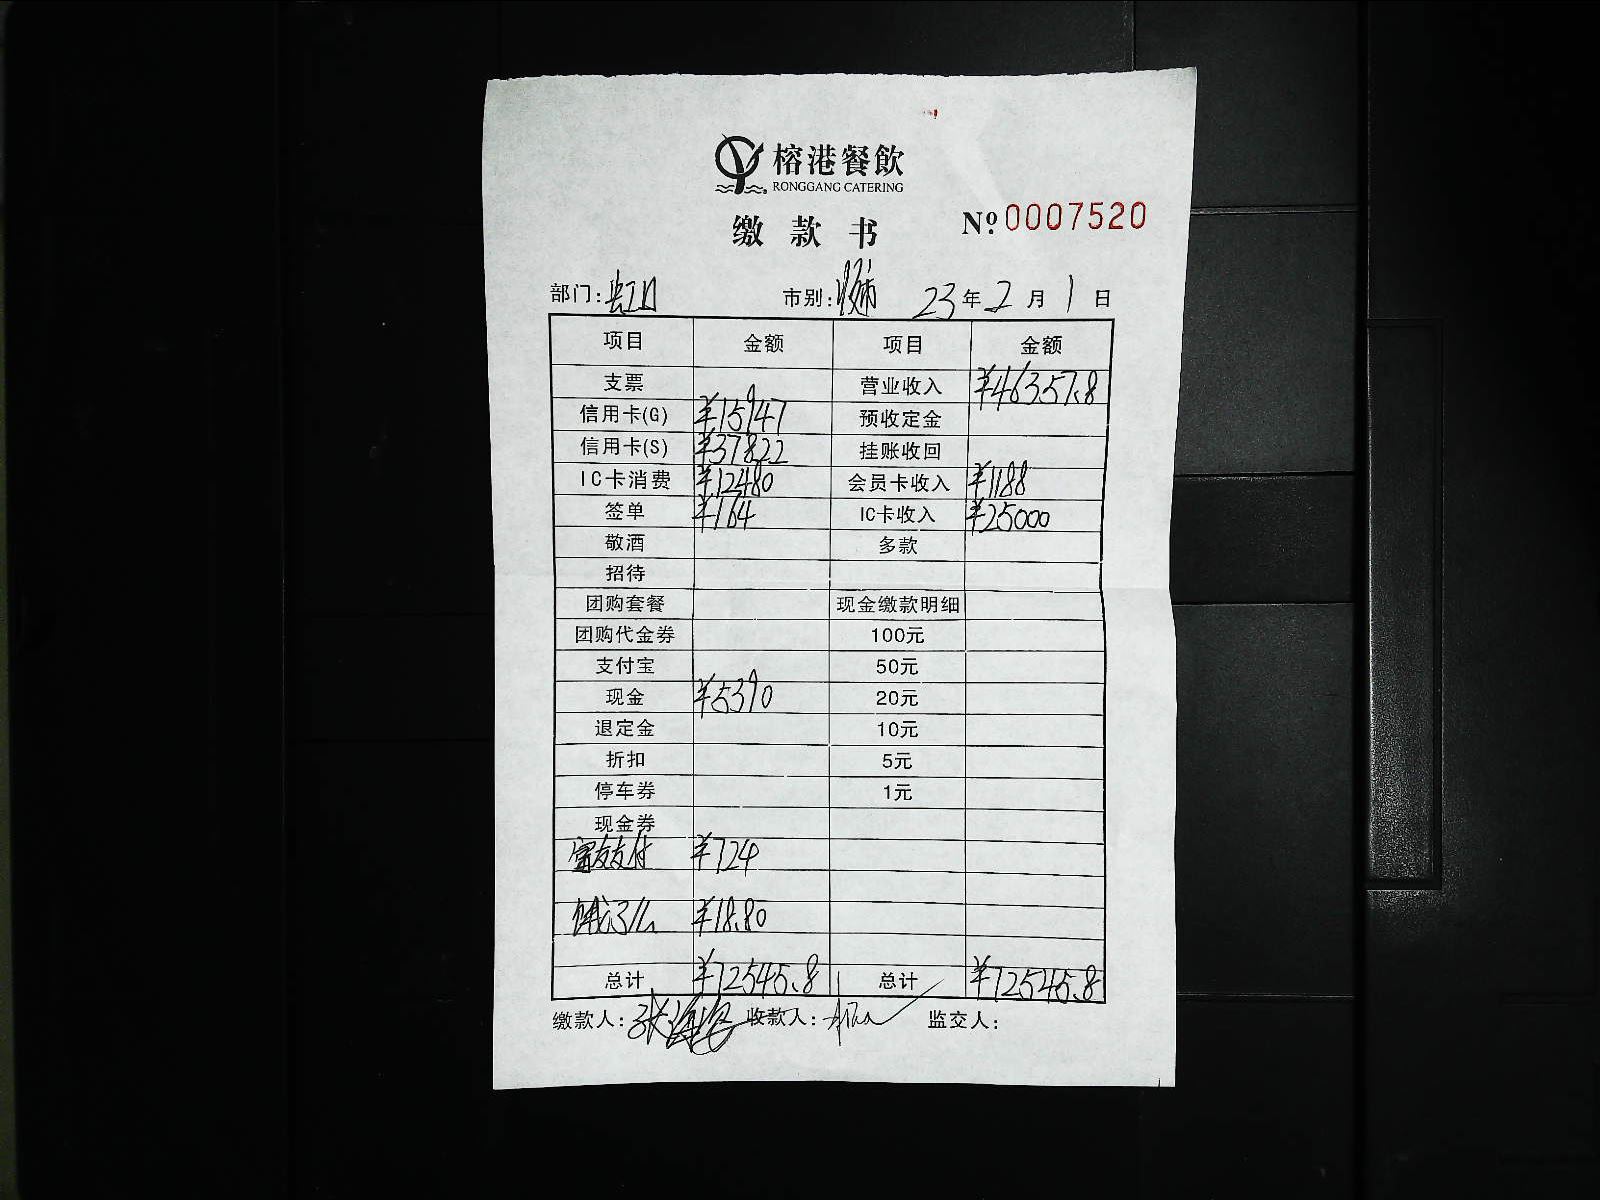 榕港餐飲
RONGGANG CATERING
缴款书 №0007520
部门:虹口 市别:晚市 23年2月1日
项目 金额 项目 金额
支票 营业收入 ¥46357.8
信用卡(G) ¥15947 预收定金
信用卡(S) ¥37822 挂账收回
IC卡消费 ¥12480 会员卡收入 ¥1188
签单 ¥164 IC卡收入 ¥25000
敬酒 多款
招待
团购套餐 现金缴款明细
团购代金券 100元
支付宝 50元
现金 ¥5390 20元
退定金 10元
折扣 5元
停车券 1元
现金券
富友支付 ¥724
饿了么 ¥18.80
总计 ¥72545.8 总计 ¥72545.8
缴款人: 收款人: 监交人: